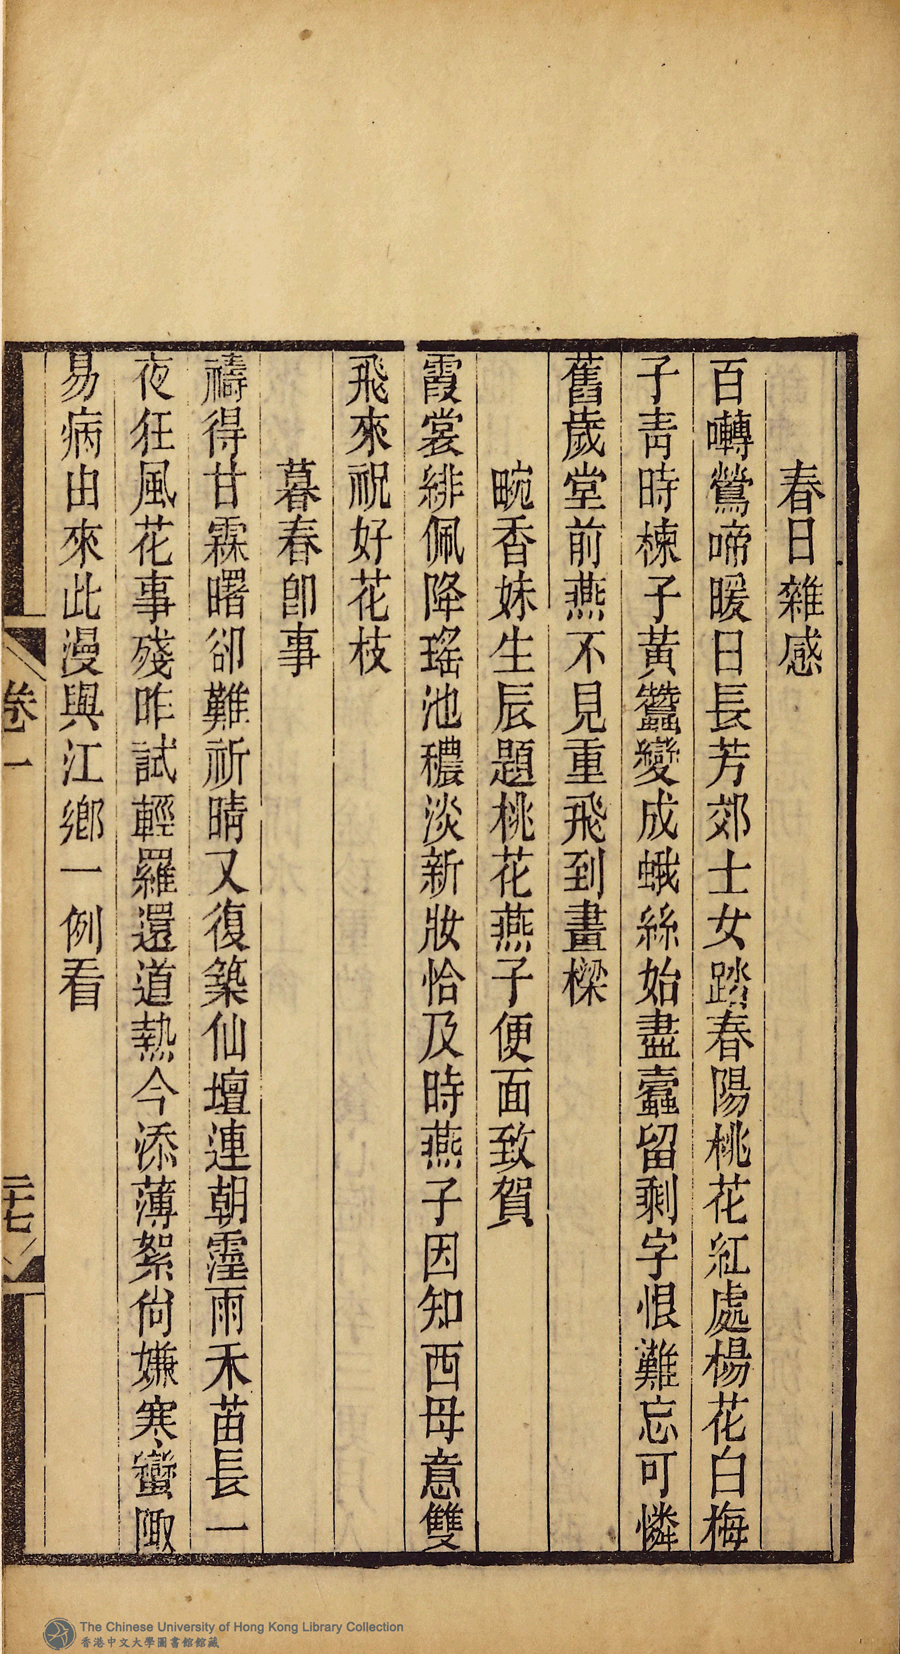 春日雜感
百囀鶯啼暖日長芳郊士女踏春陽桃花紅處楊花白梅
子青時楝子黃蠶變成蛾絲始盡蠹留剩字恨難忘可憐
舊歲堂前燕不見重飛到畫樑
畹香妹生辰題桃花燕子便面致賀
霞裳緋佩降瑤池穠淡新妝恰及時燕子因知西母意雙
飛來祝好花枝
暮春卽事
禱得甘霖曙卻難祈晴又復築仙壇連朝霪雨禾苗長一
夜狂風花事殘昨試輕羅還道熱今添薄絮尙嫌寒蠻陬
易病由來此漫與江鄉一例看
卷一
二十七
The Chinese University of Hong Kong Library Collection
香港中文大學圖書館館藏